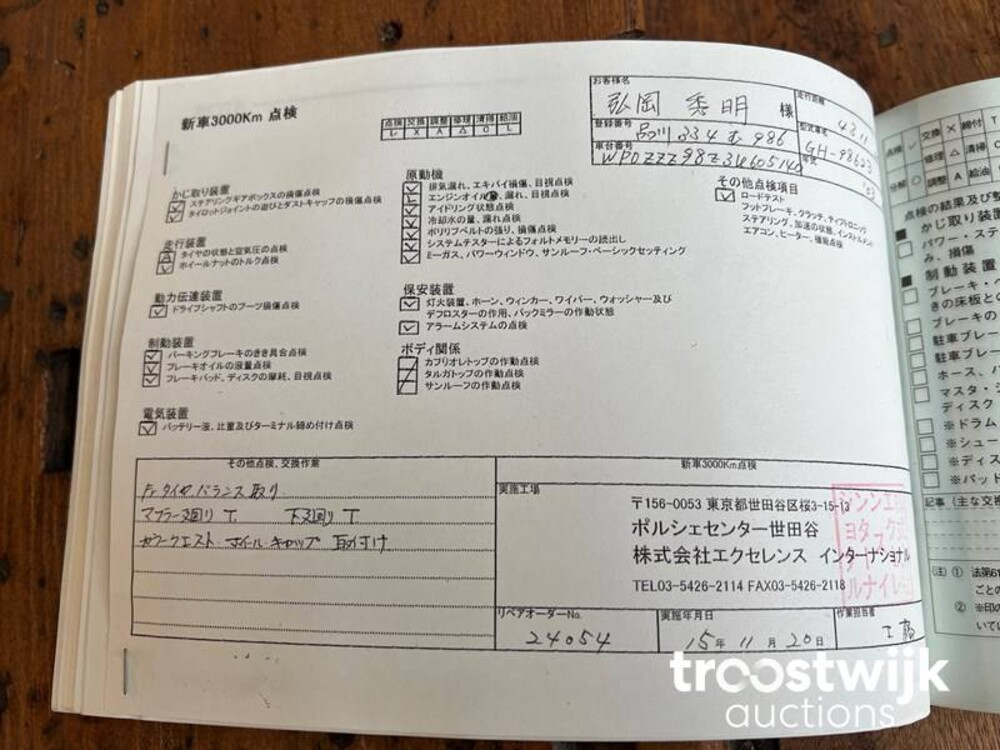 新車3000Km 点検
点検 交換 調整 修理 清掃 給油
レ X A △ O L
お客様名
弘岡 秀明 様
走行距離
登録番号
品川 334 む 986
型式車名
車台番号
かじ取り装置
ステアリングギアボックスの損傷点検
タイロットジョイントの遊びとダストキャップの損傷点検
走行装置
タイヤの状態と空気圧の点検
ホイールナットのトルク点検
動力伝達装置
ドライブシャフトのブーツ損傷点検
制動装置
パーキングブレーキのきき具合点検
ブレーキオイルの液量点検
ブレーキパッド、ディスクの摩耗、目視点検
電気装置
バッテリー液、比重及びターミナル締め付け点検
原動機
排気漏れ、エキパイ損傷、目視点検
エンジンオイル量、漏れ、目視点検
アイドリング状態点検
冷却水の量、漏れ点検
ポリリブベルトの張り、損傷点検
システムテスターによるフォルトメモリーの読出し
ミーガス、パワーウィンドウ、サンルーフ・ベーシックセッティング
保安装置
灯火装置、ホーン、ウィンカー、ワイパー、ウォッシャー及び
デフロスターの作用、バックミラーの作動状態
アラームシステムの点検
ボディ関係
カブリオレトップの作動点検
タルガトップの作動点検
サンルーフの作動点検
その他点検項目
ロードテスト
フットブレーキ、クラッチ、ティプトロニック
ステアリング、加速の状態、インストルメント
エアコン、ヒーター、機能点検
その他点検、交換作業
Fr タイヤ バランス取り
マフラー廻り T. 下廻り T
カラークエスト ホイールキャップ 取付け
新車3000Km点検
実施工場
〒156-0053 東京都世田谷区桜3-15-13
ポルシェセンター世田谷
株式会社エクセレンス インターナショナル
TEL03-5426-2114 FAX03-5426-2118
リペアオーダーNo.
24054
実施年月日
15年 11月 20日
作業担当者
工藤
点検 交換 X 締付 T
修理 △ 清掃
分解 調整 A 給油
点検の結果及び
かじ取り装置
パワー・ステ
み、損傷
制動装置
ブレーキ・ペ
きの床板と
ブレーキの
駐車ブレー
駐車ブレー
ホース、パ
マスタ・シ
ディスク
※ドラム
※シュー
※ディス
※パッド
記事 (主な交換
(注) ① 法第
ごとの
② ※印の
いて
troostwijk
auctions